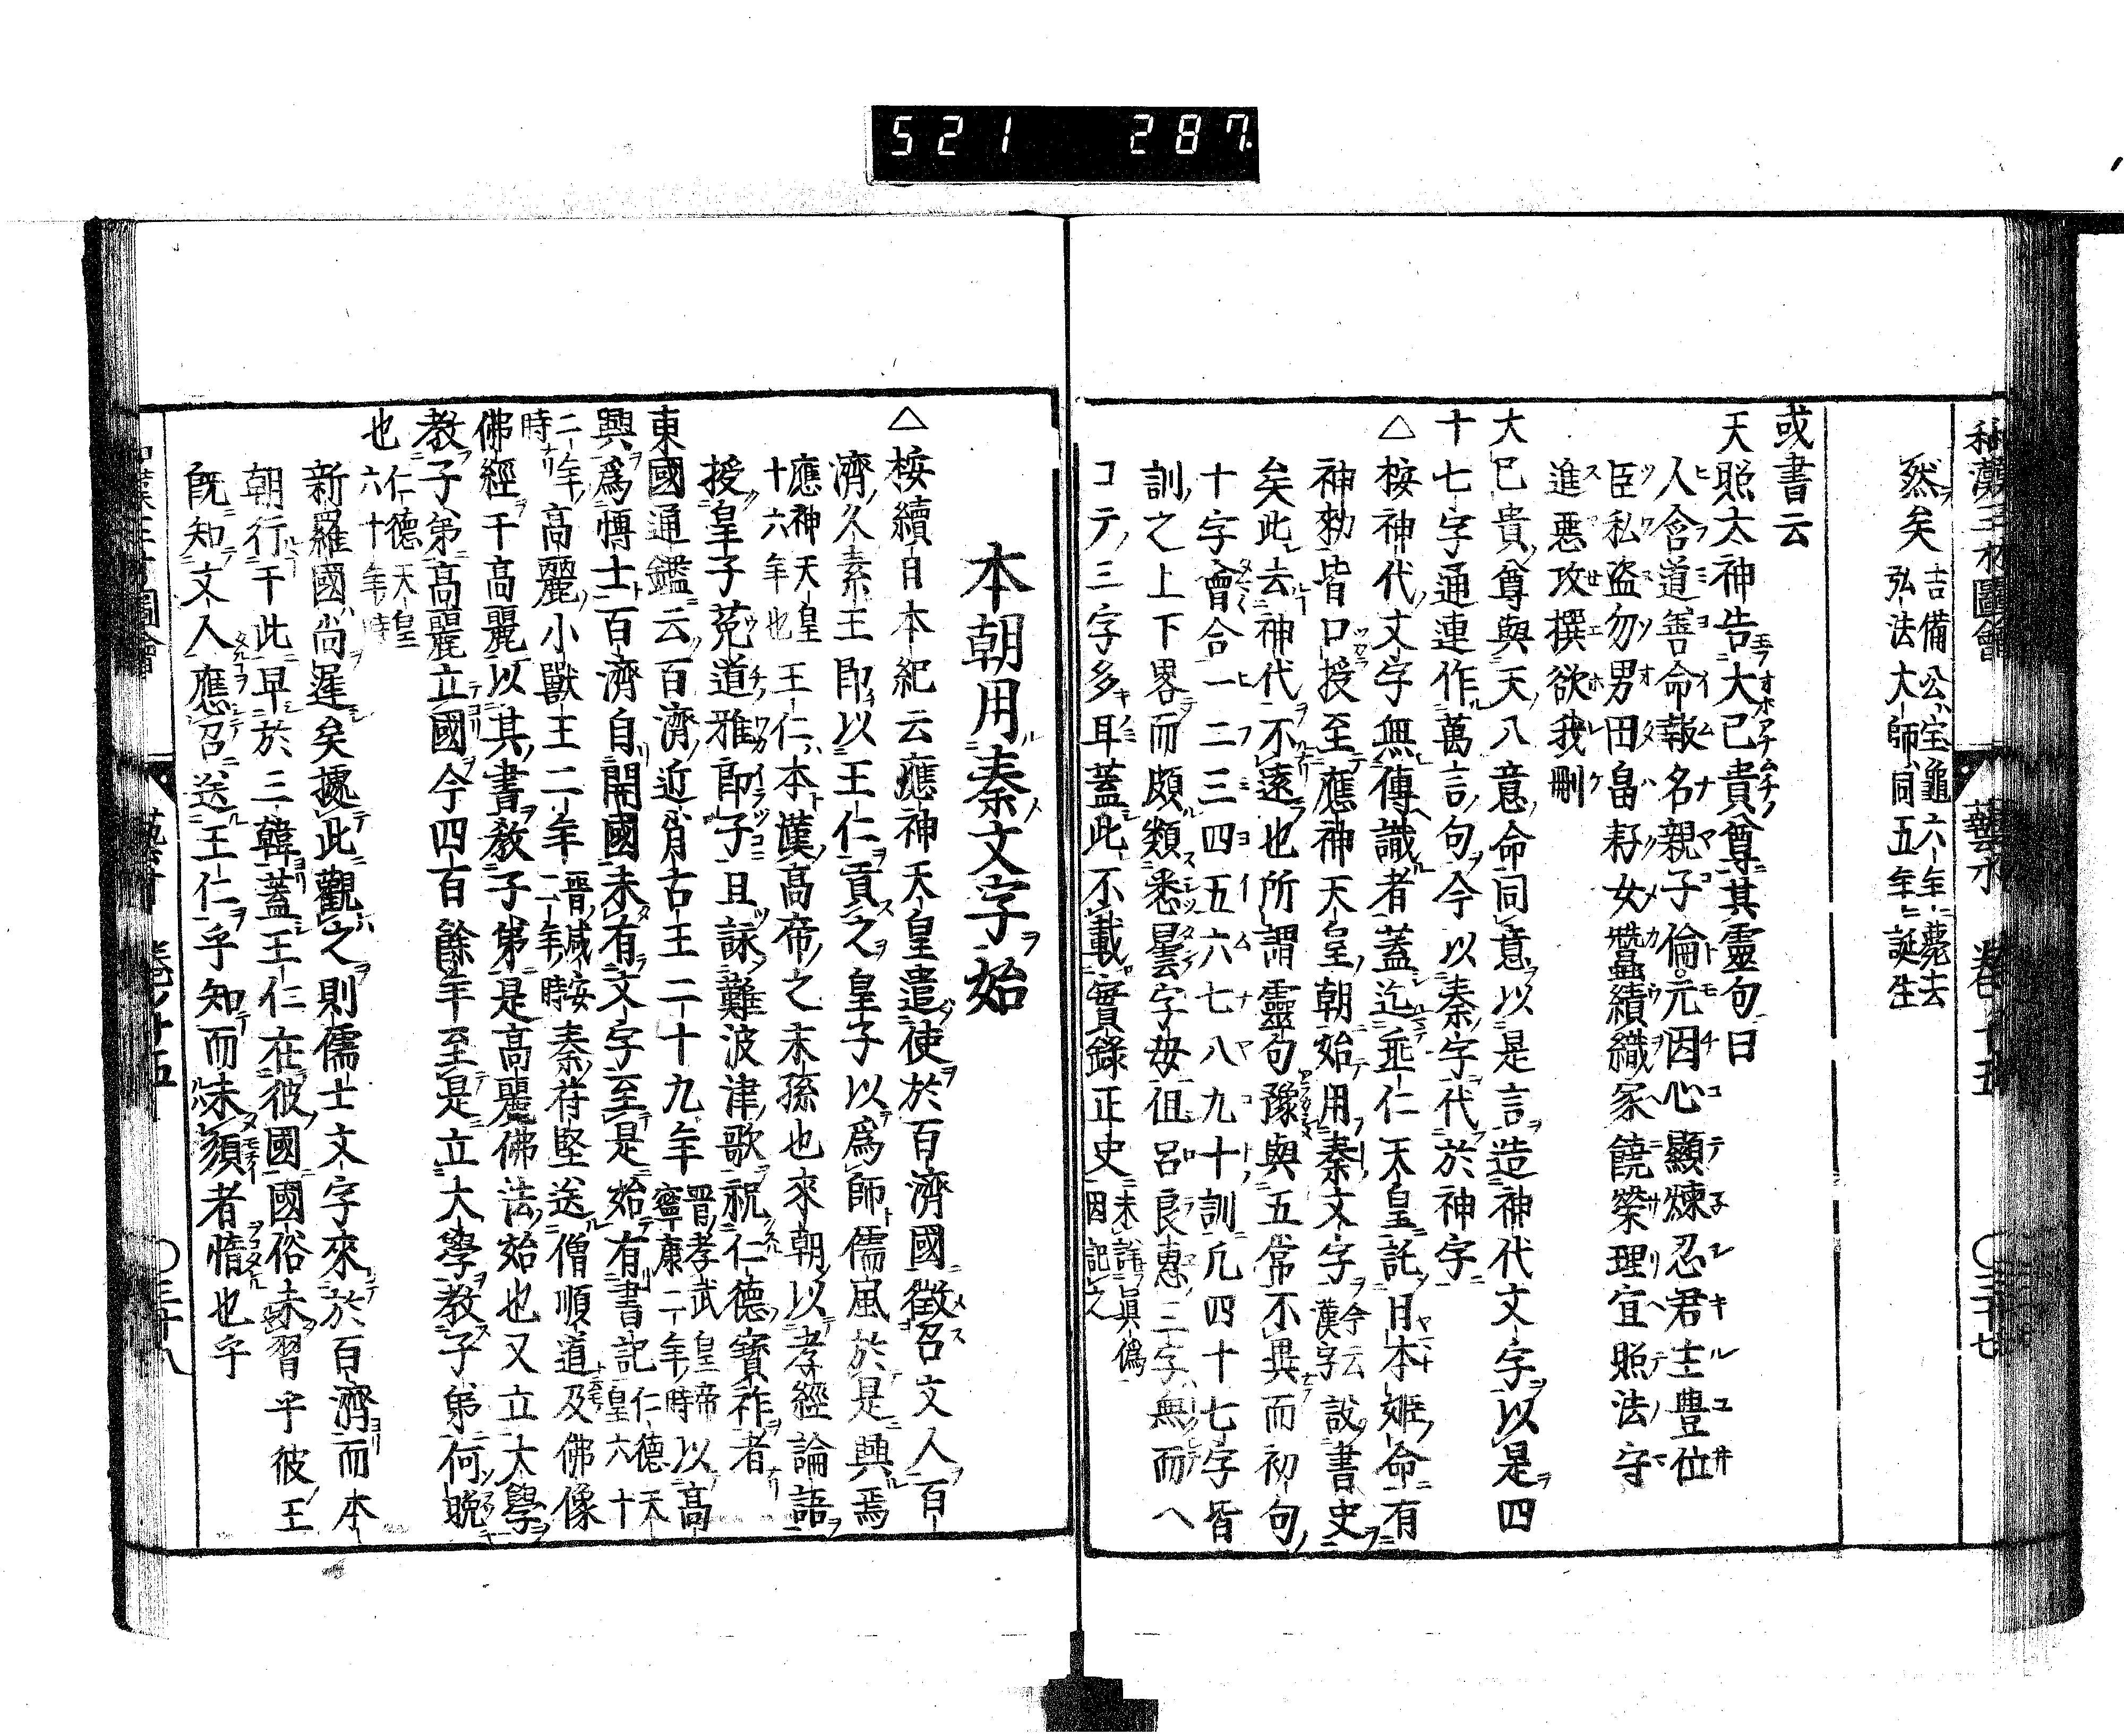 521 287
和漢三才圖會 藝才 卷ノ十五 〇三十七
然矣 吉備公宝龜六年薨去
弘法大師同五年誕生
或書云
天照太神告大己貴尊其靈句曰
人含道善命報名親子倫元因心顯煉忍君主豊位
臣私盗勿男田畠耔女蠶績織家饒榮理宜照法守
進悪攻撰欲我刪
大己貴尊與天八意命同意以是言造神代文字以是四
十七字通連作萬言句今以秦字代於神字
△桉神代文字無傳識者蓋迄垂仁天皇託日本姫命有
神勅皆口授至應神天皇朝始用秦文字 今云漢字 設書史
矣此去神代不遠也所謂靈句豫與五常不異而初句
十字會合一二三四五六七八九十訓凢四十七字皆
訓之上下畧而頗類悉曇字毋徂呂良惠三字無而ヘ
コテ三字多耳蓋此不載實錄正史 未詳眞僞因記之
本朝用秦文字始
△桉續日本紀云應神天皇遣使於百濟國徵召文人百
濟久素王即以王仁貢之皇子以爲師儒風於是興焉
應神天皇十六年也 王仁本漢高帝之末孫也來朝以孝經論語
授皇子菟道雅郎子且詠難波津歌祝仁德寶祚者
東國通鑑云百濟近肖古王二十九年 晋孝武皇帝寧康二年時 以高
興爲博士百濟自開國未有文字至是始有書記 仁德天皇六十
二年時 高麗小獸王二年 晋咸安二年時 秦苻堅送僧順道及佛像
佛經于高麗以其書教子第是高麗佛法始也又立大學
教子第高麗立國今四百餘年至是立大學教子第何晩
也 仁德天皇六十年時
新羅國尚遲矣據此觀之則儒士文字來於百濟而本
朝行于此早於三韓蓋王仁在彼國國俗未習乎彼王
旣知文人應召送王仁乎知而未須者惰也乎
藝才 卷ノ十五 〇三十八